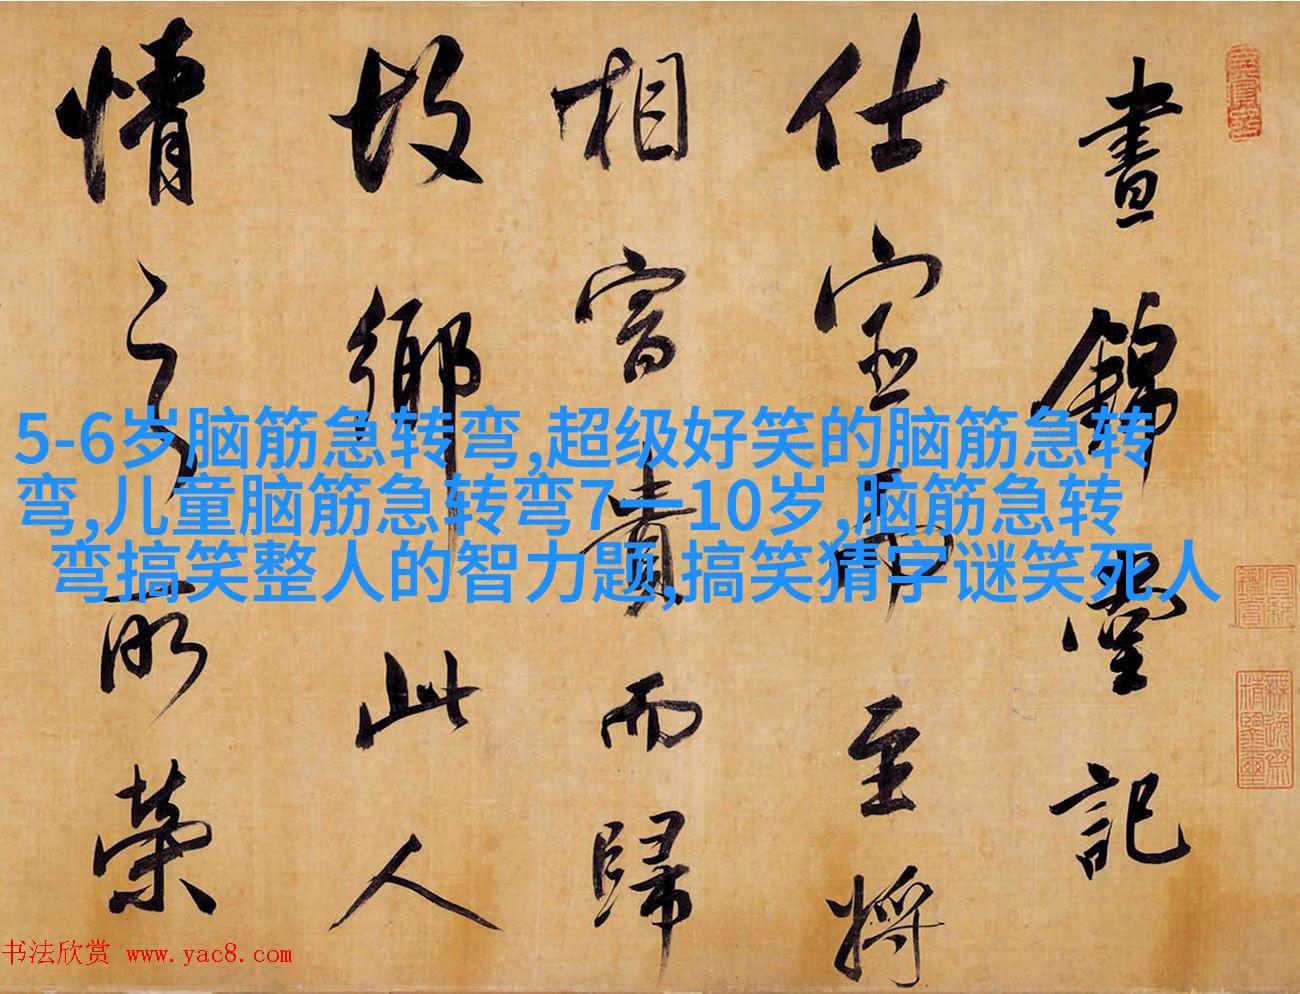 晝錦堂記
仕宦而至將
相富貴而歸
故鄉此人
情之所榮
5-6岁脑筋急转弯,超级好笑的脑筋急转
弯,儿童脑筋急转弯7一10岁,脑筋急转
弯搞笑整人的智力题,搞笑猜字谜笑死人
书法欣赏 www.yac8.com